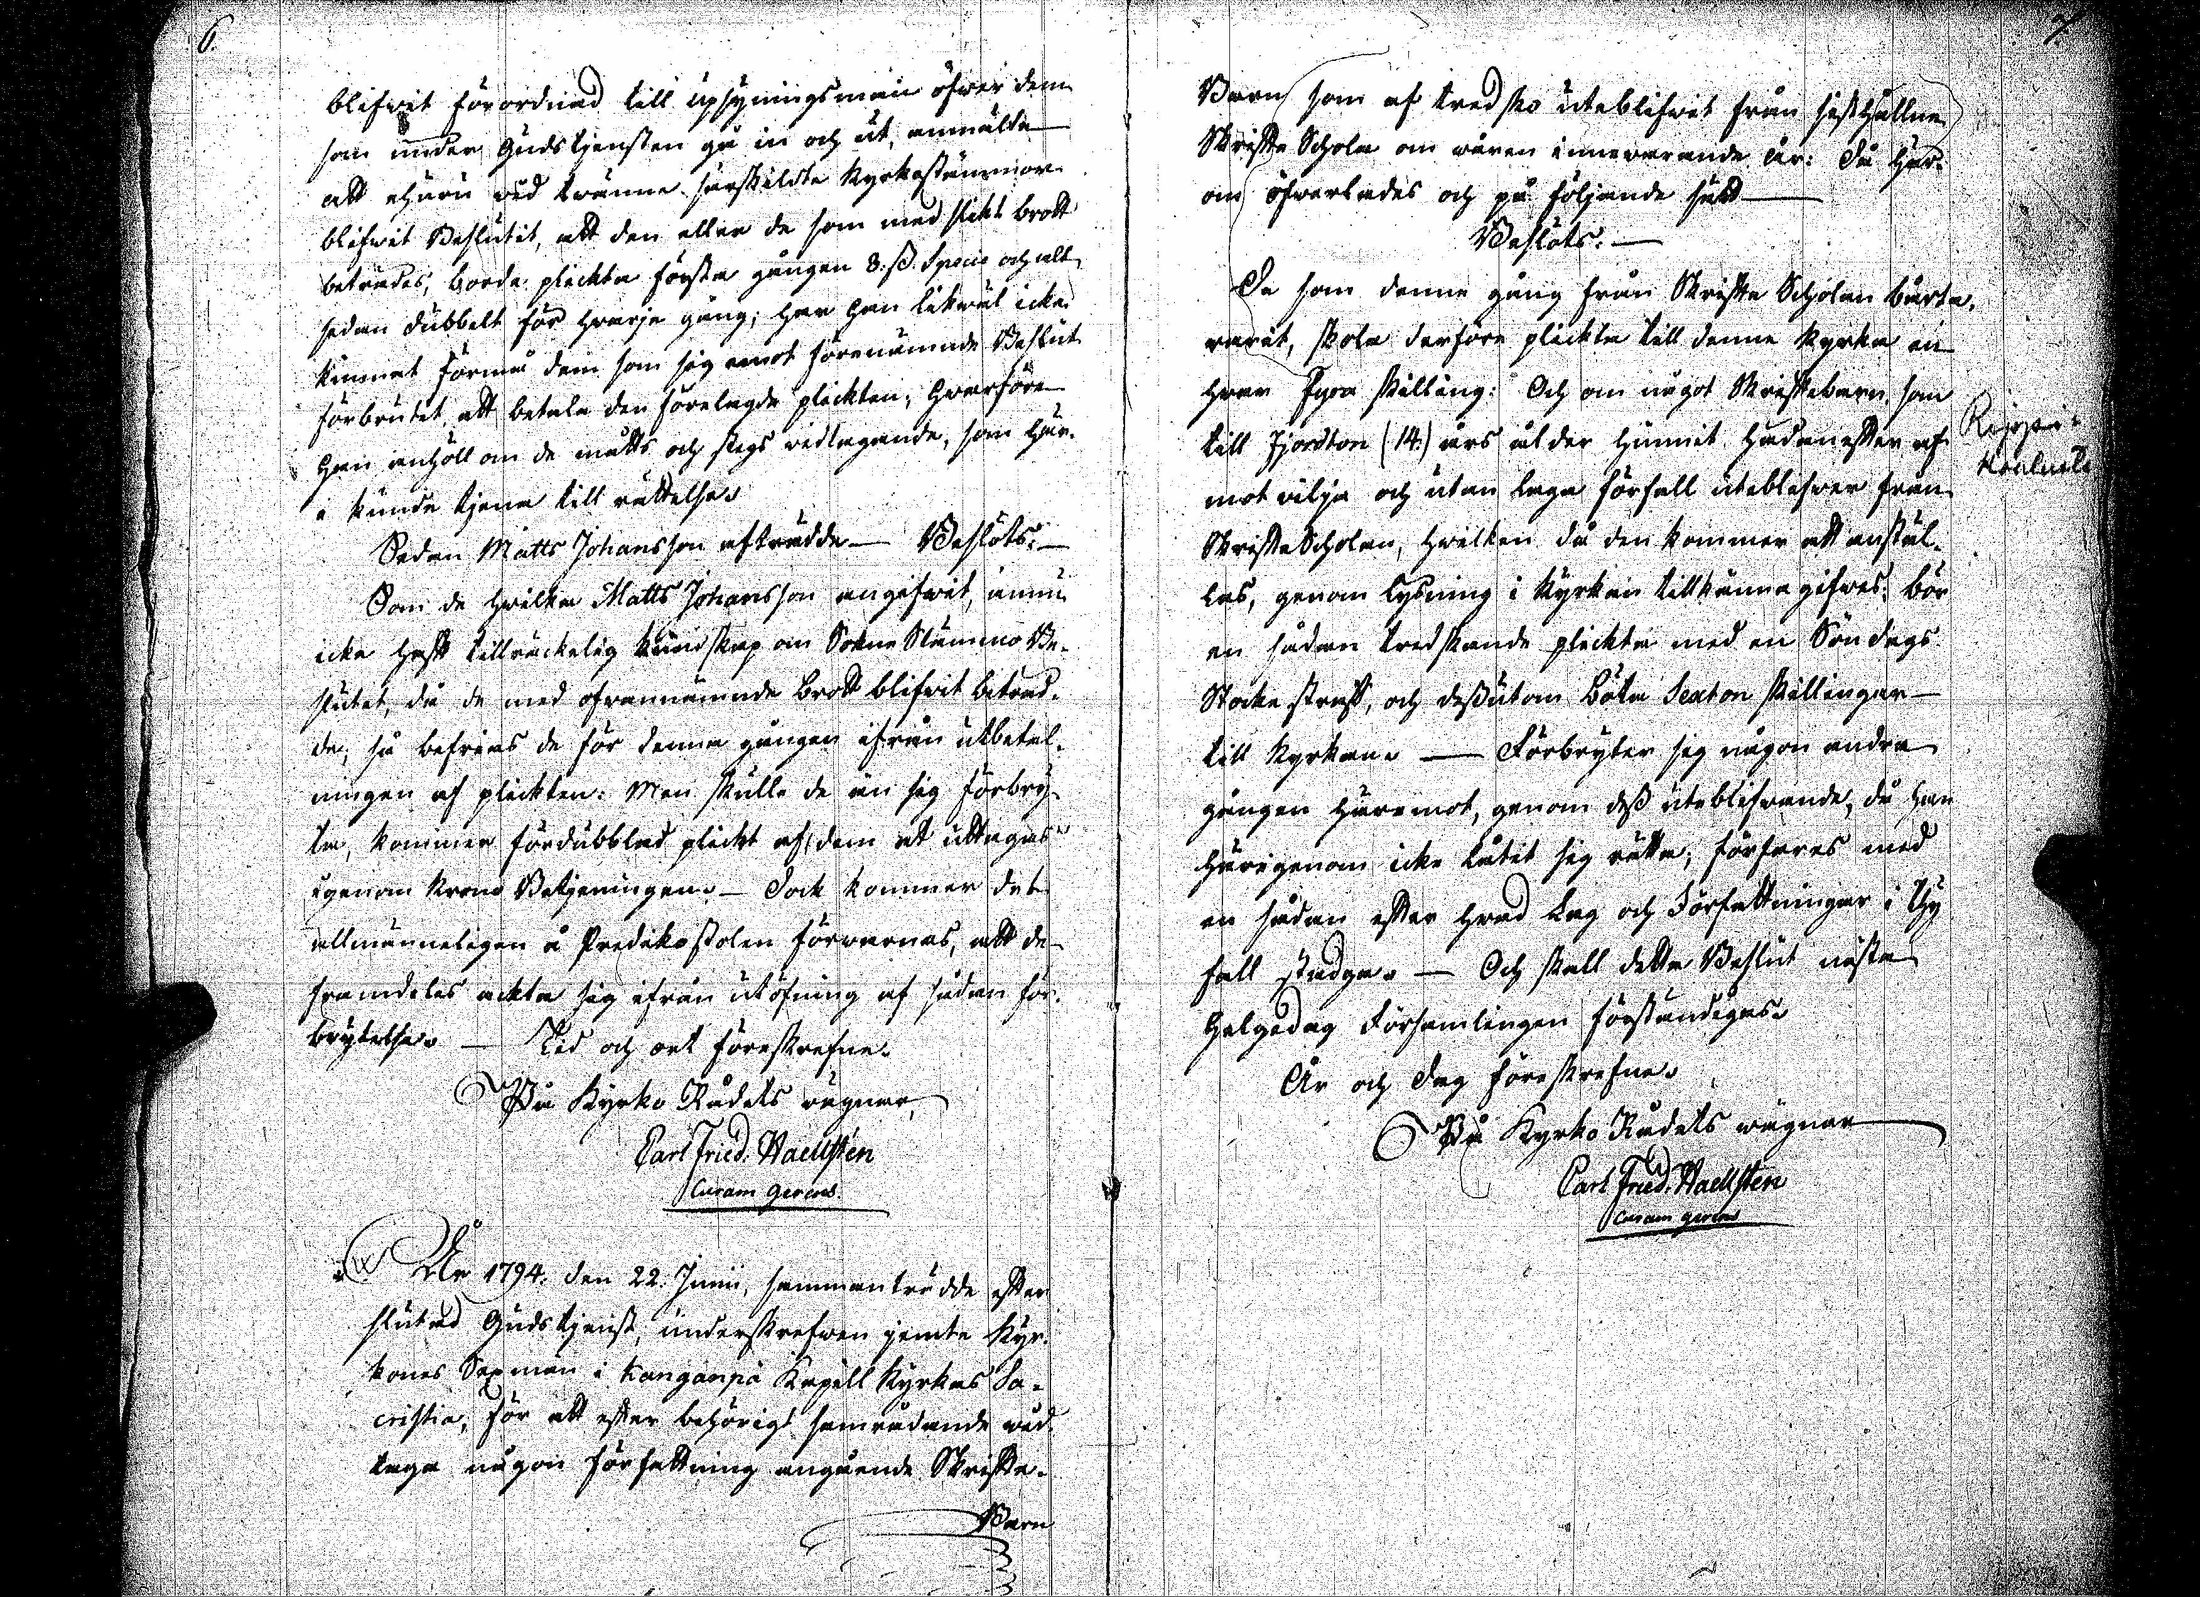 6.
blifwit förordnad till upsyningsman öfwer dem
som under Gudstjensten gå in och ut, anmälte
att ehuru wid twänne särskildte Kyrkostämmor
blifwit Beslutit, att den eller de som med slikt brott
beträdes, borde plickta första gången 8. ß. Specie och alt
sedan dubbelt för hwarje gång; har han likwäl icke
kunnat förmå dem som sig emot förenämnde Beslut
förbrutet, att betala den förelagde plickten; hwarföre
han anhöll om de mått och stegs widtagande, som här-
i kunde tjena till rättelse.
Sedan Matts Johansson afträdde — Beslöts: —
Som de hwilka Matts Johansson angifwit, ännu
icke haft tillräckelig kundskap om Sokne Stämmo Be-
slutet, då de med ofvannämnde brott blifwit beträd-
de; så befrias de för denna gången ifrån utbetal-
ningen af plickten: Men skulle de än sig förbry-
ta, kommer fördubblad plickt af dem at uttagas
igenom Krono Betjeningen. — Dock kommer det
allmänneligen å Predikostolen förwarnas, att de
framdeles ackta sig ifrån utöfning af sådan för-
brytelse. — Tid och ort föreskrefne.
På Kyrko Rådets wägnar,
Carl Fried. Waellsten
Curam gerens.
År 1794. den 22. Junii, sammanträdde efter
slutad Gudstjenst, underskrefwen jemte Kyr-
kones Sexmän i Kanganpä Kapell Kyrkas Sa-
cristia, för att efter behörigt samrådande wid-
taga någon författning angående Skrifte-
Barn
7.
Barn som af tredsko uteblifwit från sist hållne
Skrifte Schola om wåren innewarande år: Då här-
om öfwerlades och på följande sätt —
Beslöts: —
De som denne gång från Skrifte Scholan borta
warit, skola derföre plickta till denne Kyrka en
hwar Fyra skilling: Och om något Skriftebarn, som
till Fjorton (14.) års ålder hunnit hädanefter af
motwilja och utan laga förfall uteblifwer från
Skrifte Scholan, hwilken då den kommer att anstäl-
las, genom lysning i Kyrkan tillkänna gifwes; bör
en sådan tredskande plickta med en Söndags
Stocke straff, och dessutom böta Sexton skillingar —
till Kyrkan. — Förbryter sig någon andra
gången häremot, genom deß uteblifwande, då han
härigenom icke låtit sig rätta; förfares med
en sådan efter hwad Lag och Författningar i thy
fall stadga. — Och skall detta Beslut nästa
Helgedag Församlingen förständigas.
År och Dag föreskrefne.
På Kyrko Rådets wägnar
Carl Fried. Waellsten
Curam gerens